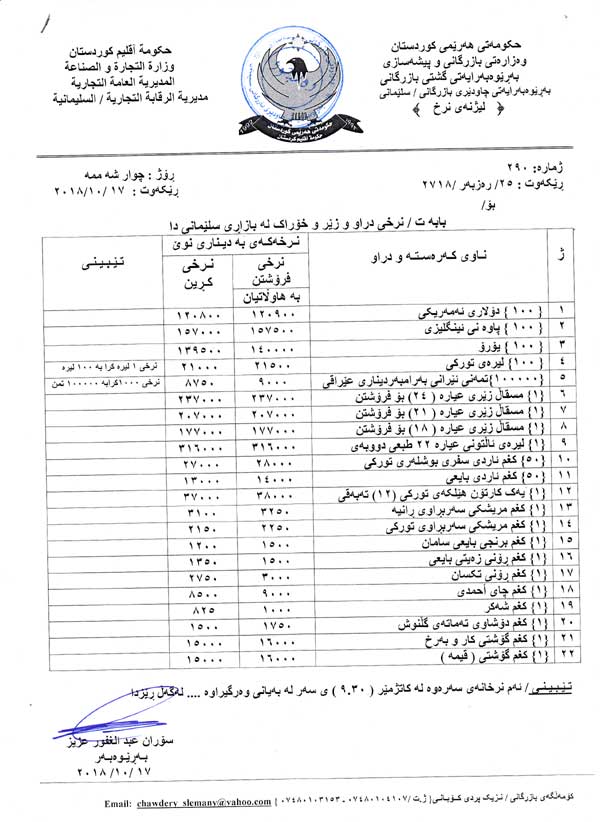 حكومەتی هەرێمی كوردستان
وەزارەتی بازرگانی و پیشەسازی
بەڕێوەبەرایەتی گشتی بازرگانی
بەڕێوەبەرایەتی چاودێری بازرگانی / سلێمانی
﴿ لیژنەی نرخ ﴾
حكومة أقليم كوردستان
وزارة التجارة و الصناعة
المديرية العامة التجارية
مديرية الرقابة التجارية / السليمانية
حكومەتی هەرێمی كوردستان
حكومة اقليم كوردستان
1992
ژمارە: ٢٩٠
ڕێكەوت : ٢٥/ ڕەزبەر /٢٧١٨
بۆ/
ڕۆژ : چوار شە ممە
ڕێكەوت : ٢٠١٨/١٠/١٧
بابە ت / نرخی دراو و زێر و خۆراك لە بازاڕی سلێمانی دا
ژ ناوی كەرەستە و دراو نرخەكەی بە دیناری نوێ تێبینی
نرخی فرۆشتن بە هاوڵاتیان نرخی كڕین
١ {١٠٠} دۆلاری ئەمەریكی ١٢٠٩٠٠ ١٢٠٨٠٠
٢ {١٠٠} پاوە نی ئینگلیزی ١٥٧٥٠٠ ١٥٧٠٠٠
٣ {١٠٠} یۆرۆ ١٤٠٠٠٠ ١٣٩٥٠٠
٤ {١٠٠} لیرەی توركی ٢١٥٠٠ ٢١٠٠٠ نرخی ١ لیرە كرا بە ١٠٠ لیرە
٥ {١٠٠٠٠٠}تمەنی ئێرانی بەرامبەردیناری عێراقی ٩٠٠٠ ٨٧٥٠ نرخی ١٠٠٠كرابە ١٠٠٠٠٠ تمن
٦ {١} مسقاڵ زێڕی عیارە (٢٤) بۆ فرۆشتن ٢٣٧٠٠٠ ٢٣٧٠٠٠
٧ {١} مسقاڵ زێڕی عیارە (٢١) بۆ فرۆشتن ٢٠٧٠٠٠ ٢٠٧٠٠٠
٨ {١} مسقاڵ زێڕی عیارە (١٨) بۆ فرۆشتن ١٧٧٠٠٠ ١٧٧٠٠٠
٩ {١} لیرەی ئاڵتونی عیارە ٢٢ طبعی دووبەی ٣١٦٠٠٠ ٣١٦٠٠٠
١٠ {٥٠} كغم ئاردی سفری بوشلەری توركی ٢٨٠٠٠ ٢٧٠٠٠
١١ {٥٠} كغم ئاردی بایعی ١٤٠٠٠ ١٣٠٠٠
١٢ {١} یەك كارتۆن هێلكەی توركی (١٢) تەبەقی ٣٨٠٠٠ ٣٧٠٠٠
١٣ {١} كغم مریشكی سەربڕاوی ڕانیە ٣٢٥٠ ٣١٠٠
١٤ {١} كغم مریشكی سەربڕاوی توركی ٢٢٥٠ ٢١٥٠
١٥ {١} كغم برنجی بایعی سامان ١٥٠٠ ١٢٠٠
١٦ {١} كغم ڕۆنی زەیتی بایعی ١٥٠٠ ١٣٥٠
١٧ {١} كغم ڕۆنی تكسان ٣٠٠٠ ٢٧٥٠
١٨ {١} كغم چای أحمدی ٩٠٠٠ ٨٥٠٠
١٩ {١} كغم شەكر ١٠٠٠ ٨٢٥
٢٠ {١} كغم دۆشاوی تەماتەی گڵنوش ١٧٥٠ ١٥٠٠
٢١ {١} كغم گۆشتی كار و بەرخ ١٦٠٠٠ ١٥٠٠٠
٢٢ {١} كغم گۆشتی ( قیمە ) ١٦٠٠٠ ١٥٠٠٠
تێبینی/ ئەم نرخانەی سەرەوە لە كاتژمێر (٩.٣٠) ی سەر لە بەیانی وەرگیراوە .... لەگەڵ ڕێزدا
سۆران عبد الغفور عزیز
بەڕێوەبەر
٢٠١٨/١٠/١٧
كۆمەڵگەی بازرگانی / نزیك پردی كۆبانی{ ژ.ت /٠٧٤٨٠١٠٤١٠٧ ـ ٠٧٤٨٠١٠٣١٥٣ }
Email: chawdery_slemany@yahoo.com